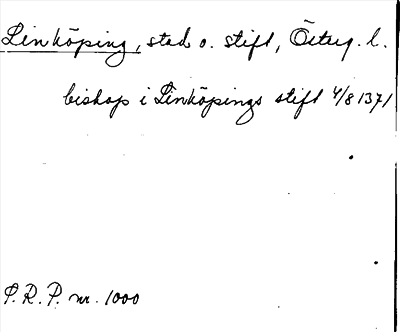 Linköping, stad o. stift, Österg. l.
biskop i Linköpings stift 4/8 1371
P.R.P. nr. 1000